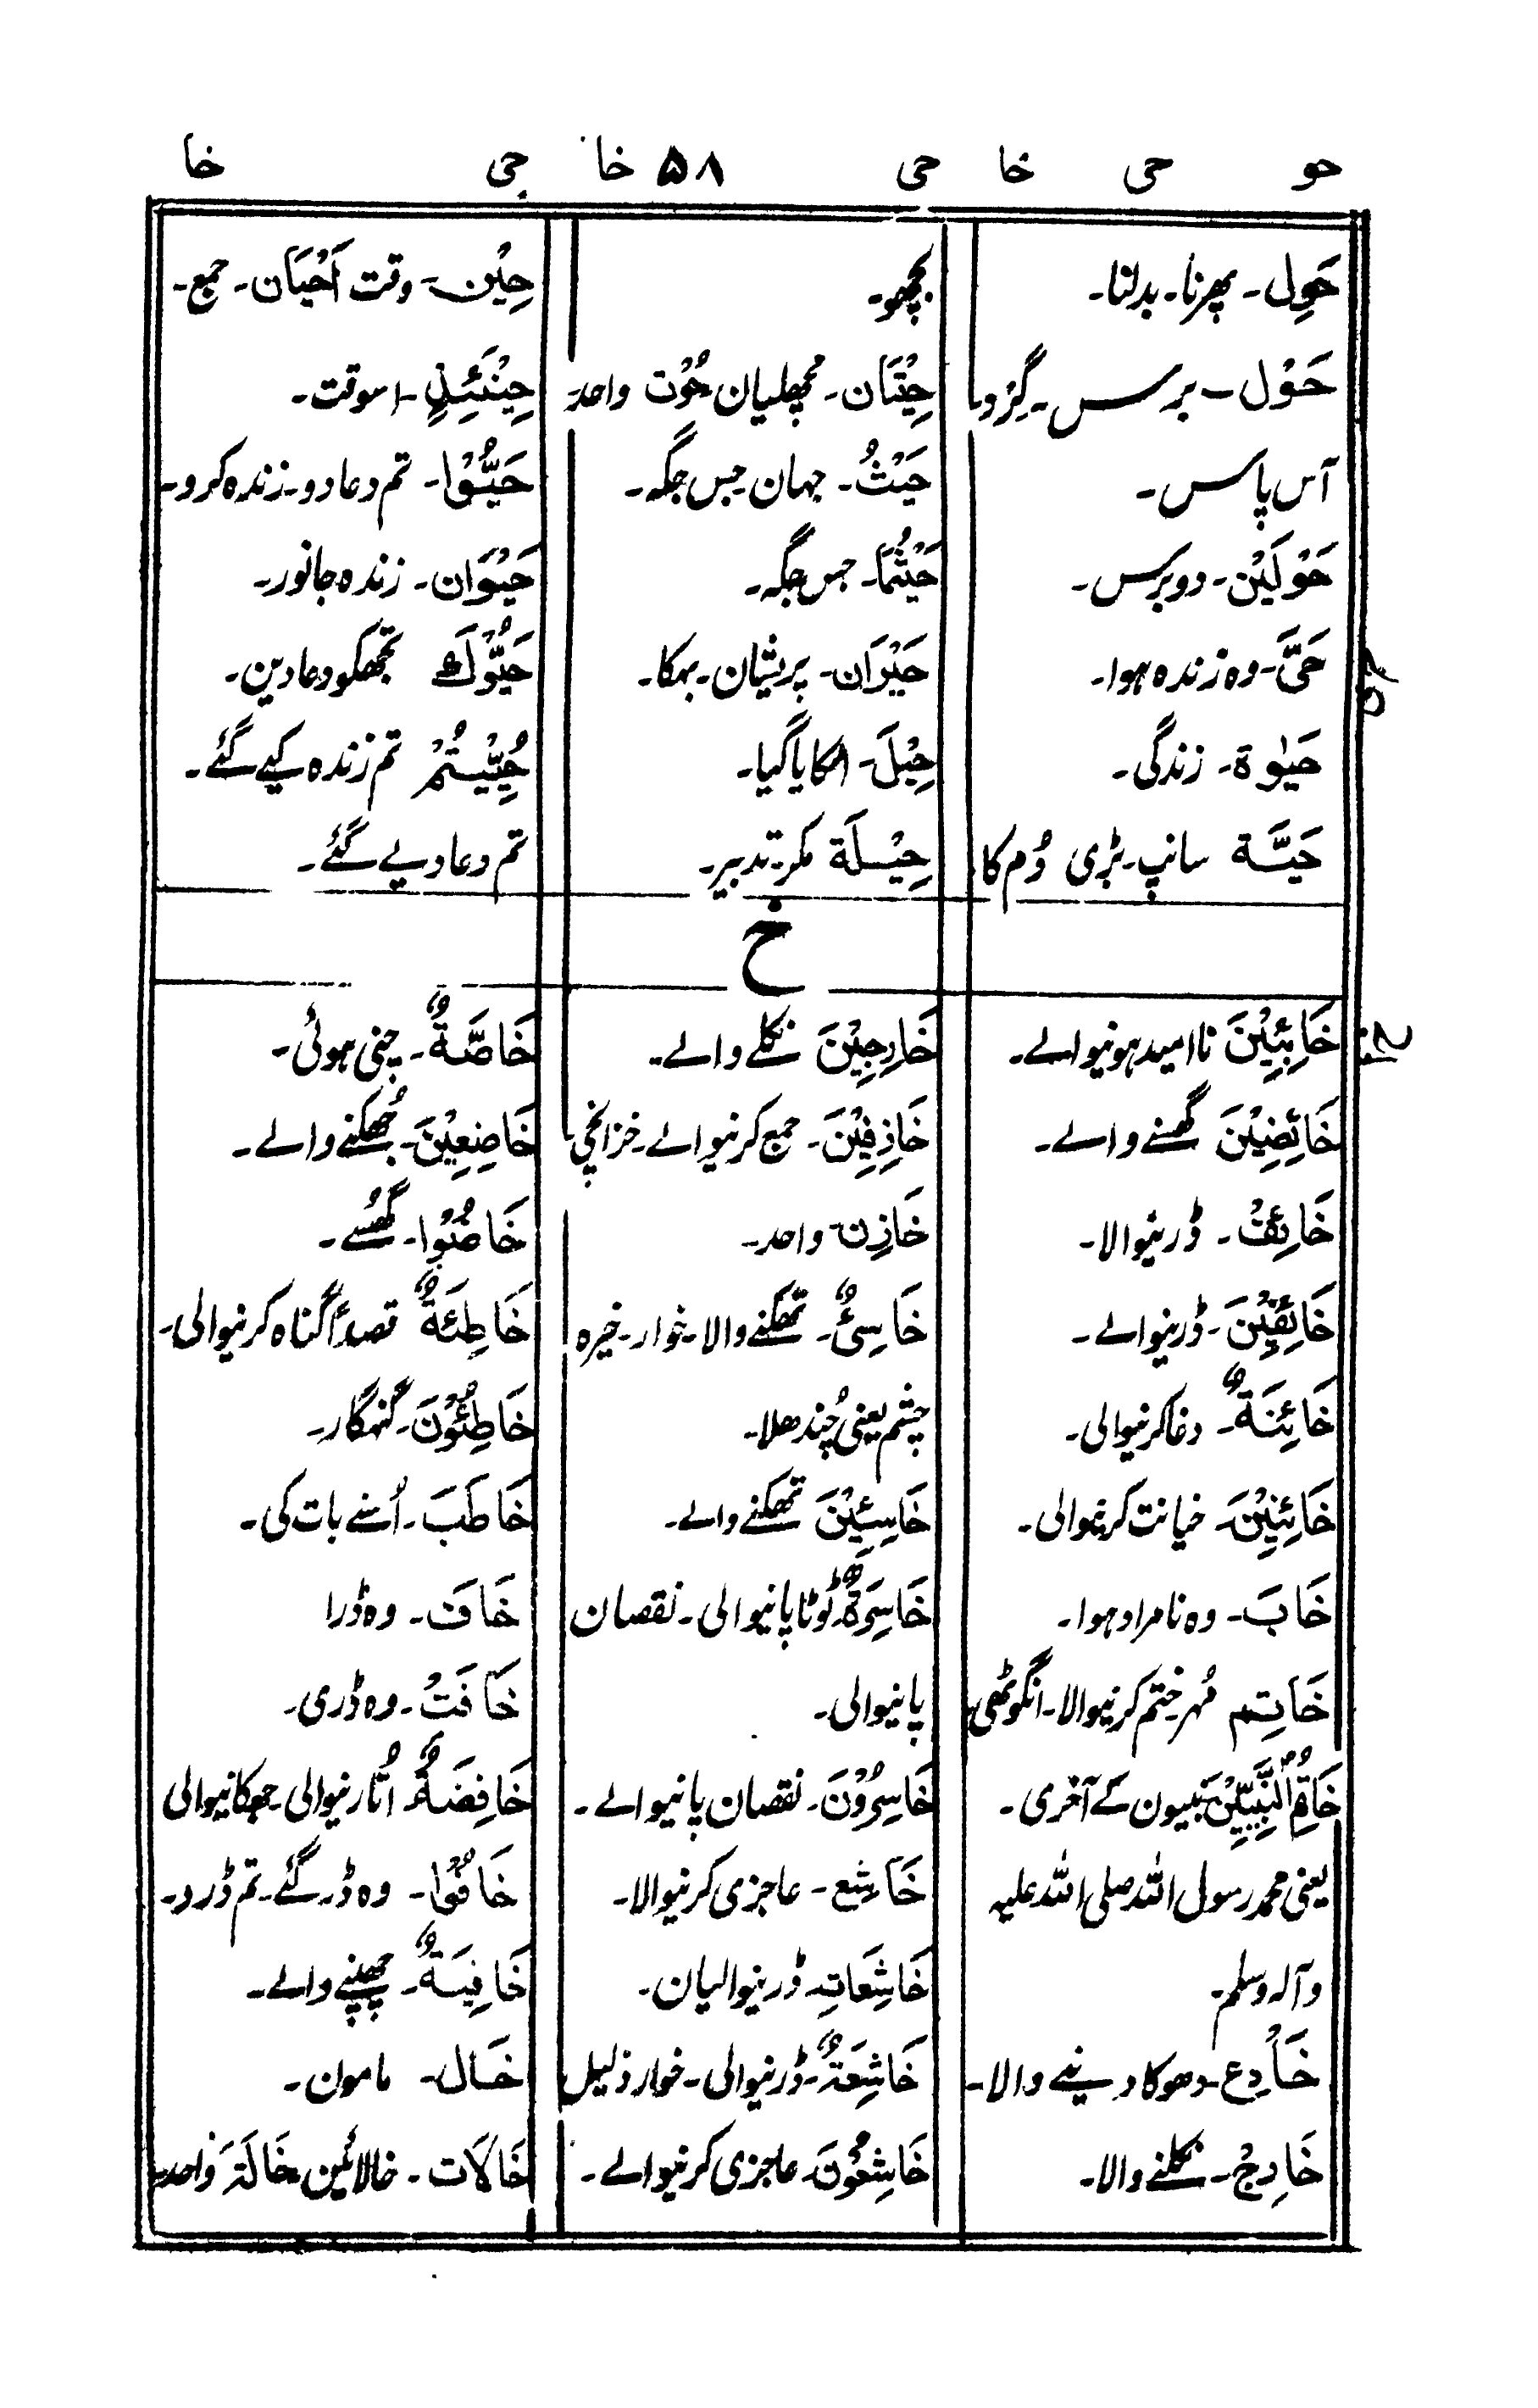 حو حی خا حی ۵۸ خا حی خا
حِوَل۔ پھرنا۔ بدلنا۔
حَوْل۔ برس۔ گِرْد۔
آس پاس۔
حَوْلَیْن۔ دو برس۔
حَیَّ۔ وہ زندہ ہوا۔
حَیٰوة۔ زندگی۔
حَیَّة سانپ۔ بڑی دُم کا
بچھو۔
حِیْتَان۔ مچھلیان حُوْت واحد
حَیْثُ۔ جہان جس جگہ۔
حَیْثُمَا۔ جس جگہ۔
حَیْرَان۔ پریشان۔ بہکا۔
حِیْلَ۔ اٹکایا گیا۔
حِیْلَة مکر۔ تدبیر۔
حِیْن۔ وقت اَحْیَان۔ جمع۔
حِیْنَئِذٍ۔ اسوقت۔
حَیُّوْا۔ تم دعا دو۔ زندہ کرو۔
حَیْوَان۔ زندہ جانور۔
حَیُّوْكَ تجھکو دعا دین۔
حُیِّیْتُمْ تم زندہ کیے گئے۔
تم دعا دیے گئے۔
خ
خَائِبِیْنَ نا امید ہونیوالے۔
خَائِضِیْنَ گھسنے والے۔
خَائِفٌ۔ ڈرنیوالا۔
خَائِفِیْنَ۔ ڈرنیوالے۔
خَائِنَةٌ۔ دغا کرنیوالی۔
خَائِنِیْنَ۔ خیانت کرنیوالی۔
خَابَ۔ وہ نامراد ہوا۔
خَاتِم مُہر ختم کرنیوالا۔ انگوٹھی
خَاتَمُ النَّبِیّٖنَ نبیون کے آخری۔
یعنی محمد رسول اللہ صلی اللہ علیہ
وآلہ وسلم۔
خَادِع۔ دھوکا دینے والا۔
خَارِجْ۔ نکلنے والا۔
خَارِجِیْنَ نکلے والے۔
خَازِنِیْنَ۔ جمع کرنیوالے۔ خزانچی
خَازِن واحد۔
خَاسِئٌ۔ تھکنے والا۔ خوار۔ خیرہ
چشم یعنی چُندھلا۔
خَاسِئِیْنَ تھکنے والے۔
خَاسِرَةٌ۔ ٹوٹا پانیوالی۔ نقصان
پانیوالی۔
خَاسِرُوْنَ۔ نقصان پانیوالے۔
خَاشِع۔ عاجزی کرنیوالا۔
خَاشِعَات۔ ڈرنیوالیان۔
خَاشِعَةٌ۔ ڈرنیوالی۔ خوار ذلیل
خَاشِعُوْنَ۔ عاجزی کرنیوالے۔
خَاصَّةٌ۔ چنی ہوئی۔
خَاضِعِیْنَ۔ جُھکنے والے۔
خَاضُوْا۔ گھُسے۔
خَاطِئَةٌ قصداً گناہ کرنیوالی۔
خَاطِئُوْنَ۔ گنہگار۔
خَاطَبَ۔ اُسنے بات کی۔
خَافَ۔ وہ ڈرا
خَافَتْ۔ وہ ڈری۔
خَافِضَةٌ اُتارنیوالی۔ جھکانیوالی
خَافُوْا۔ وہ ڈر گئے۔ تم ڈرو۔
خَافِیَةٌ۔ چھپنے والے۔
خَال۔ مامون۔
خَالَات۔ خالائین خَالَة واحد